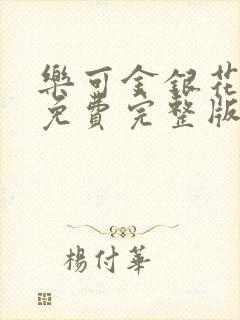 樂可金銀花
免費完整版
楊付華